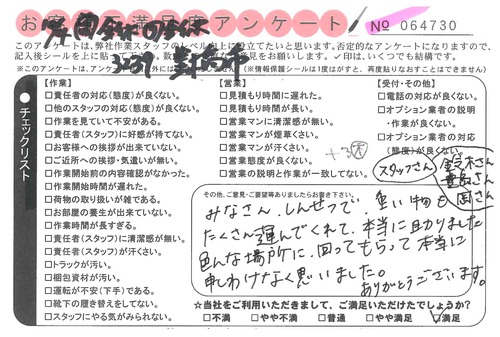 お客様満足度アンケート
No 064730
このアンケートは、弊社作業スタッフのレベル向上に役立てたいと思います。否定的なアンケートになりますので、
□責任者の対応(態度)が良くない。
□他のスタッフの対応(態度)が良くない。
□作業を見ていて不安がある。
□責任者(スタッフ)に好感が持てない。
□お客様への挨拶が出来ていない。
□ご近所への挨拶・気遣いが無い。
□作業開始前の内容確認がなかった。
□作業開始時間が遅れた。
□荷物の取り扱いが雑である。
□お部屋の養生が出来ていない。
□作業時間が長すぎる。
□責任者(スタッフ)に清潔感が無い。
□責任者(スタッフ)が汗くさい。
□トラックが汚い。
□梱包資材が汚い。
□運転が不安(下手)である。
□靴下の履き替えをしてない。
□スタッフにやる気がみられない。
チェックリスト
【作業】
【営業】
□見積もり時間に遅れた。
□見積もり時間が長い。
□営業マンに清潔感が無い。
□営業マンが煙草くさい。
□営業マンが汗くさい。
□営業態度が良くない。
□営業の説明と作業が一致してない。
【受付・その他】
□電話の対応が良くない。
□オプション業者の説明
・作業が良くない。
□オプション業者の対応
(態度)が良くない。
スタッフさん
鈴木さん
岡さん
その他、ご意見・ご要望等ありましたらお書き下さい。
みなさん、しんせつで、重い物も
たくさん運んでくれて、本当に助かりました
色んな場所に、回ってもらって本当に
申しわけなく思いました。
ありがとうございます。
☆当社をご利用いただきまして、ご満足いただけたでしょうか?
□不満 □やや不満 □普通 □やや満足 ☑満足